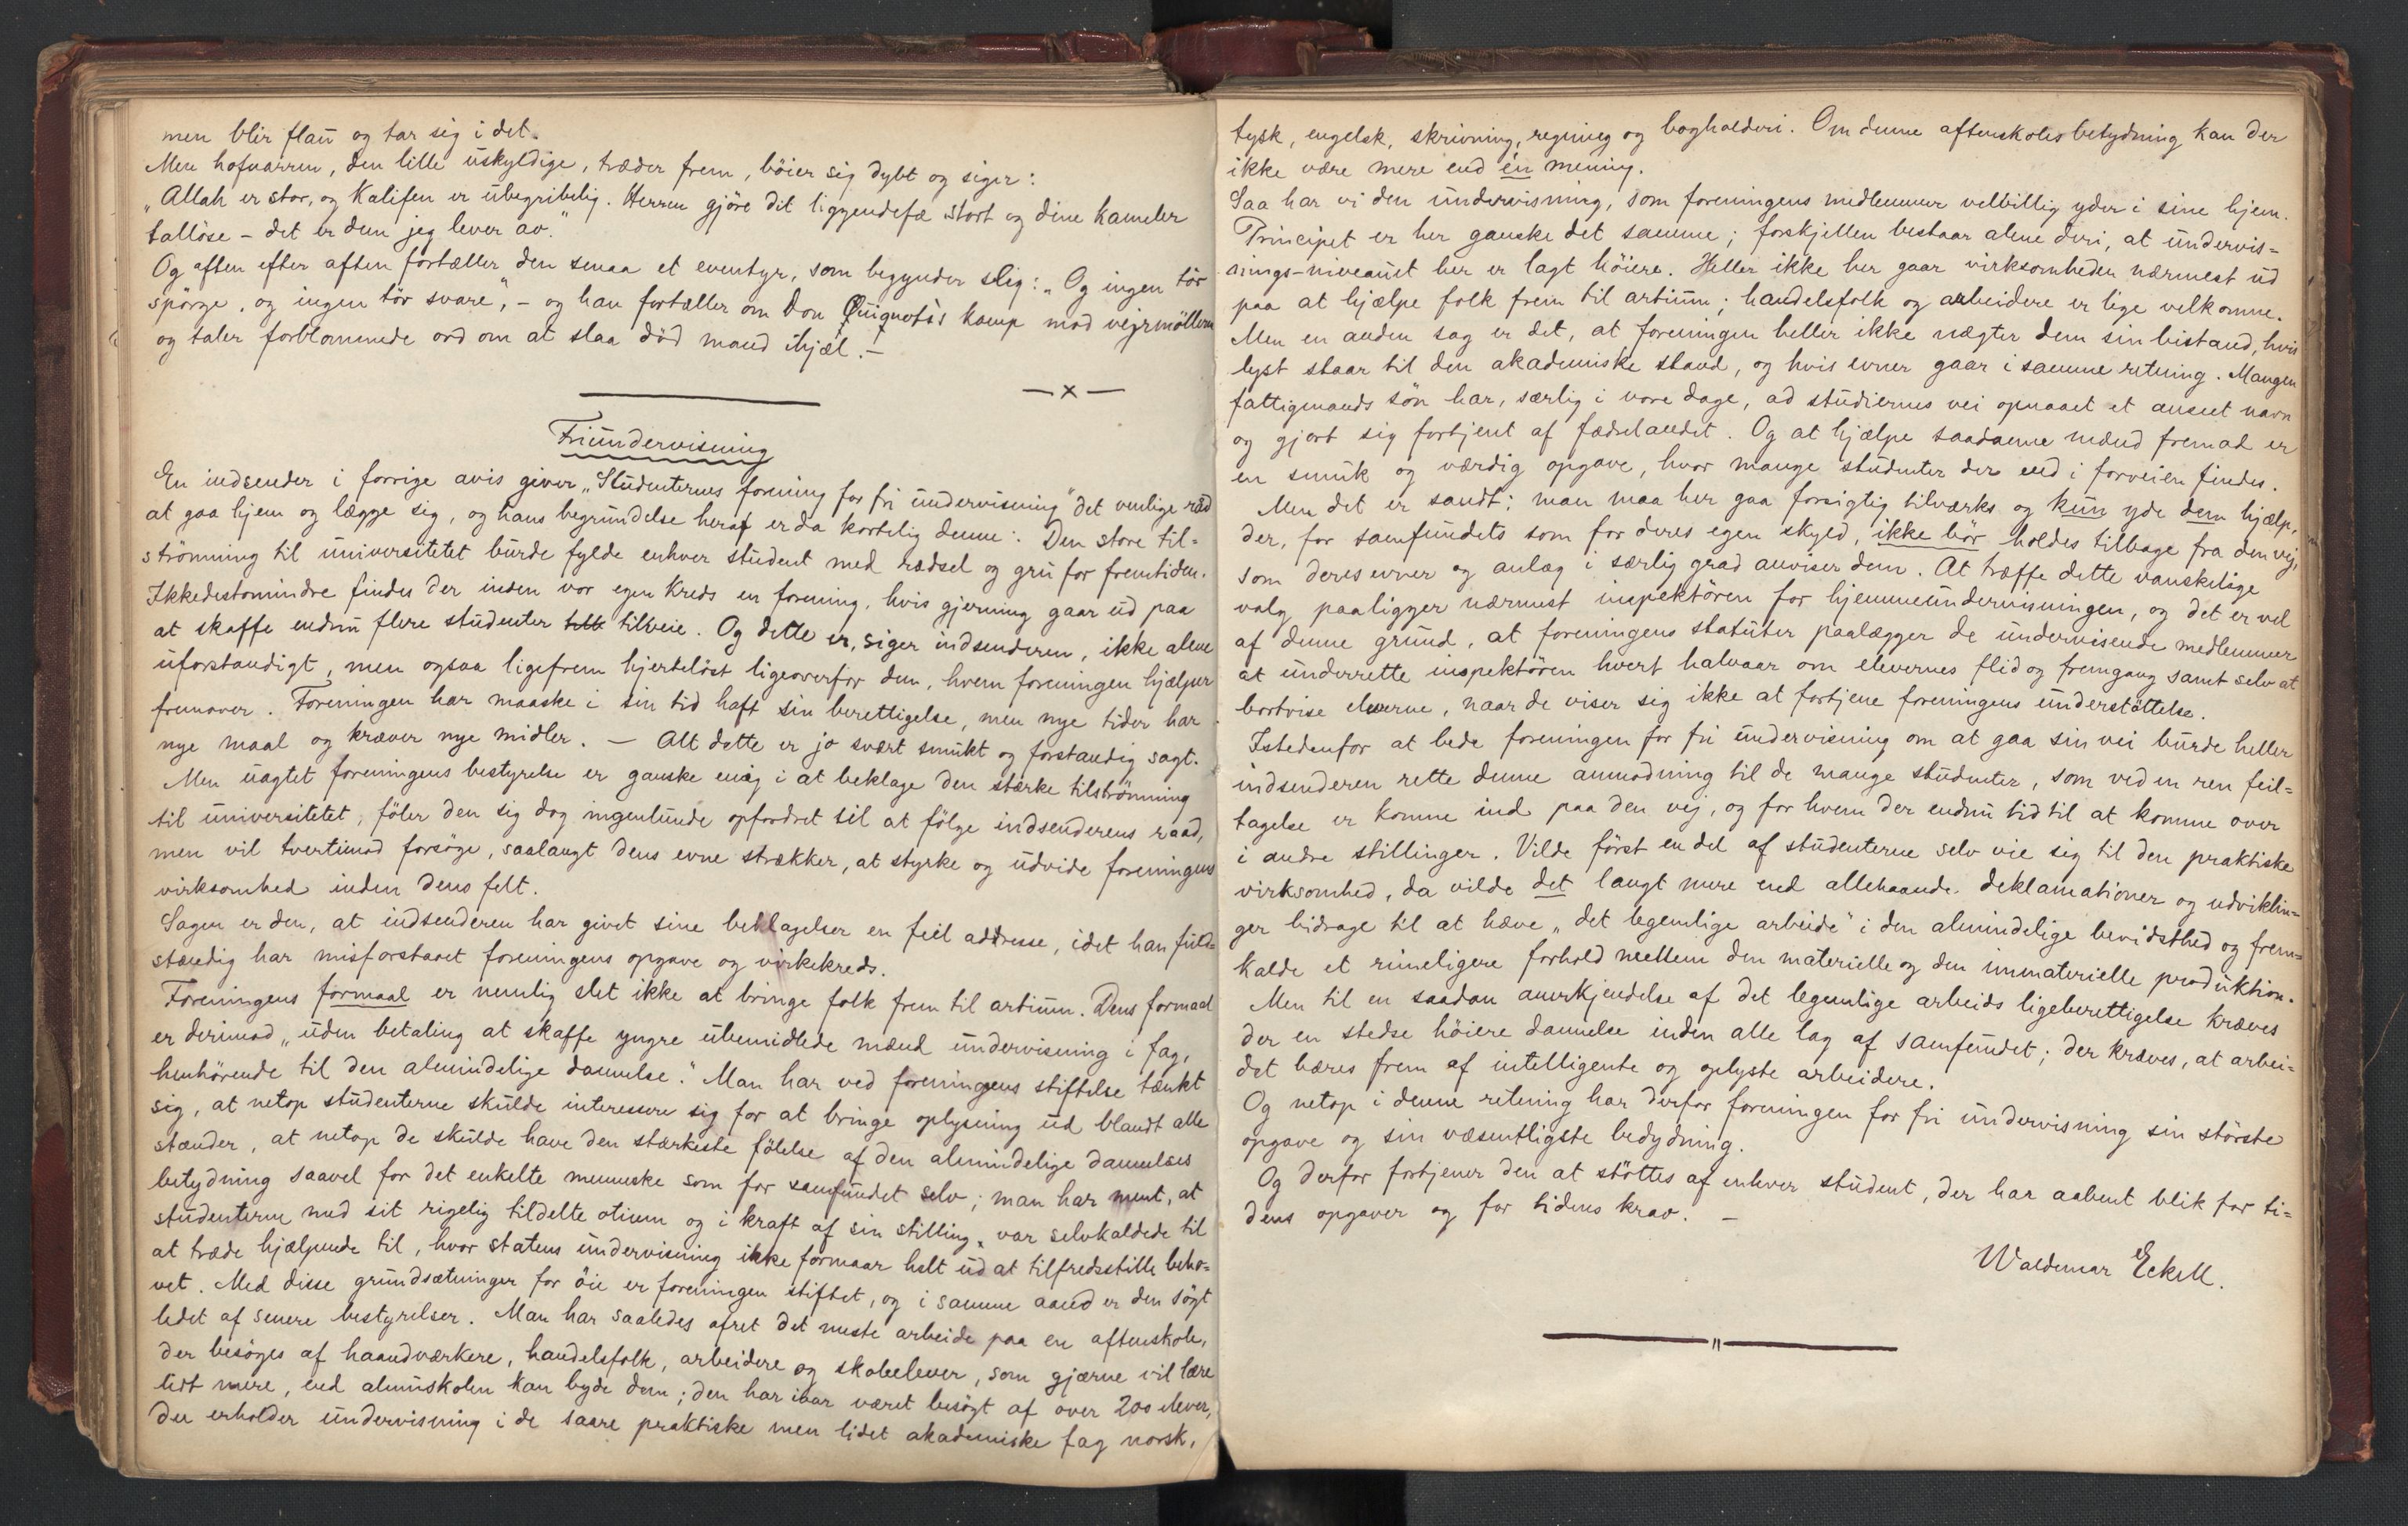 men blir flau og tar sig i det.
Men hofnarren, den lille uskyldige, træder frem, böier sig dybt og siger:
„Allah er stor, og Kalifen er ubegribelig. Herren gjöre dit liggendefæ stort og dine kameler
tallöse – det er dem jeg lever av."
Og aften efter aften fortæller den smaa et eventyr, som begynder slig: „Og ingen tör
spörge, og ingen tör svare", – og han fortæller om Don Quiqnotes kamp mod vejrmöllerne
og taler forblommede ord om at slaa död mand ihjæl. –
– x –
Friundervisning
En indsender i forrige avis giver „Studenternes forening for fri undervisning" det venlige råd
at gaa hjem og lægge sig, og hans begrundelse heraf er da kortelig denne: Den store til=
strömning til universitetet burde fylde enhver student med rædsel og gru for fremtiden.
Ikkedestomindre findes der inden vor egen Kreds en forening, hvis gjerning gaar ud paa
at skaffe endnu flere studenter tilveie. Og dette er, siger indsenderen, ikke alene
uforstandigt, men ogsaa ligefrem hjerteløst ligeoverfor dem, hvem foreningen hjælper
fremover. Foreningen har maaske i sin tid haft sin berettigelse, men nye tider har
nye maal og kræver nye midler. – Alt dette er jo svært smukt og forstandig sagt.
Men uagtet foreningens bestyrelse er ganske enig i at beklage den stærke tilströmning
til universitetet, föler den sig dog ingenlunde opfordret til at fölge indsenderens raad,
men vil tvertimod forsöge, saalangt dens evne strækker, at styrke og udvide foreningens
virksomhed inden dens felt.
Sagen er den, at indsenderen har givet sine beklagelser en feil addresse, idet han fuld=
stændig har misforstaaet foreningens opgave og virkekreds.
Foreningens formaal er nemlig slet ikke at bringe folk frem til artium. Dens formaal
er derimod „uden betaling at skaffe yngre ubemidlede mænd undervisning i fag,
henhörende til den almindelige dannelse." Man har ved foreningens stiftelse tænkt
sig, at netop studenterne skulde interessere sig for at bringe oplysning ud blandt alle
stænder, at netop de skulde have den stærkeste fölelse af den almindelige dannelses
betydning saavel for det enkelte menneske som for samfundet selv; man har ment, at
studenterne med sit rigelig tildelte otium og i kraft af sin stilling, var selvkaldede til
at træde hjælpende til, hvor statens undervisning ikke formaar helt ud at tilfredsstille beho=
vet. Med disse grundsætninger for öie er foreningen stiftet, og i samme aand er den sögt
ledet af senere bestyrelser. Man har saaledes ofret det meste arbeide paa en aftenskole,
der besöges af haandværkere, handelsfolk, arbeidere og skoleelever, som gjærne vil lære
lidt mere, end almuskolen kan byde dem; den har iaar været besögt af over 200 elever,
der erholder undervisning i de saare praktiske men lidet akademiske fag norsk,
tysk, engelsk, skrivning, regning og bogholderi. Om denne aftenskoles betydning kan der
ikke være mere end én mening.
Saa har vi den undervisning, som foreningens medlemmer velvillig yder i sine hjem.
Principet er her ganske det samme; forskjellen bestaar alene deri, at undervis=
nings-niveauet her er lagt höiere. Heller ikke her gaar virksomheden nærmest ud
paa at hjælpe folk frem til artium; handelsfolk og arbeidere er lige velkomne.
Men en anden sag er det, at foreningen heller ikke nægter dem sin bistand, hvis
lyst staar til den akademiske stand, og hvis evner gaar i samme retning. Mangen
fattigmands sön har, særlig i vore dage, ad studiernes vei opnaaet et anseet navn
og gjort sig fortjent af fædrelandet. Og at hjælpe saadanne mænd fremad er
en smuk og værdig opgave, hvor mange studenter der end i forveien findes.
Men det er sandt: man maa her gaa forsigtig tilværks og kun yde dem hjælp,
der, for samfundets som for deres egen skyld, ikke bör holdes tilbage fra den vej,
som deres evner og anlæg i særlig grad anviser dem. At træffe dette vanskelige
valg paaligger nærmest inspektören for hjemmeundervisningen, og det er vel
af denne grund, at foreningens statuter paalægger de undervisende medlemmer
at underrette inspektören hvert halvaar om elevernes flid og fremgang samt selv at
bortvise eleverne, naar de viser sig ikke at fortjene foreningens understöttelse.
Istedenfor at bede foreningen for fri undervisning om at gaa sin vei burde heller
indsenderen rette denne anmodning til de mange studenter, som ved en ren feil=
tagelse er komne ind paa den vej, og for hvem der endnu tid til at komme over
i andre stillinger. Vilde först en del af studenterne selv vie sig til den praktiske
virksomhed, da vilde det langt mere end allehaande deklamationer og udviklin=
ger bidrage til at hæve „det legemlige arbeide" i den almindelige bevidsthed og frem=
kalde et rimeligere forhold mellem den materielle og den immaterielle produktion.
Men til en saadan anerkjendelse af det legemlige arbeids ligeberettigelse kræves
der en stedse höiere dannelse inden alle lag af samfundet; der kræves, at arbei=
det bæres frem af intelligente og oplyste arbeidere.
Og netop i denne retning har derfor foreningen for fri undervisning sin störste
opgave og sin væsentligste bedydning.
Og derfor fortjener den at stöttes af enhver student, der har aabent blik for ti=
dens opgaver og for tidens krav. –
Waldemar Eckell.